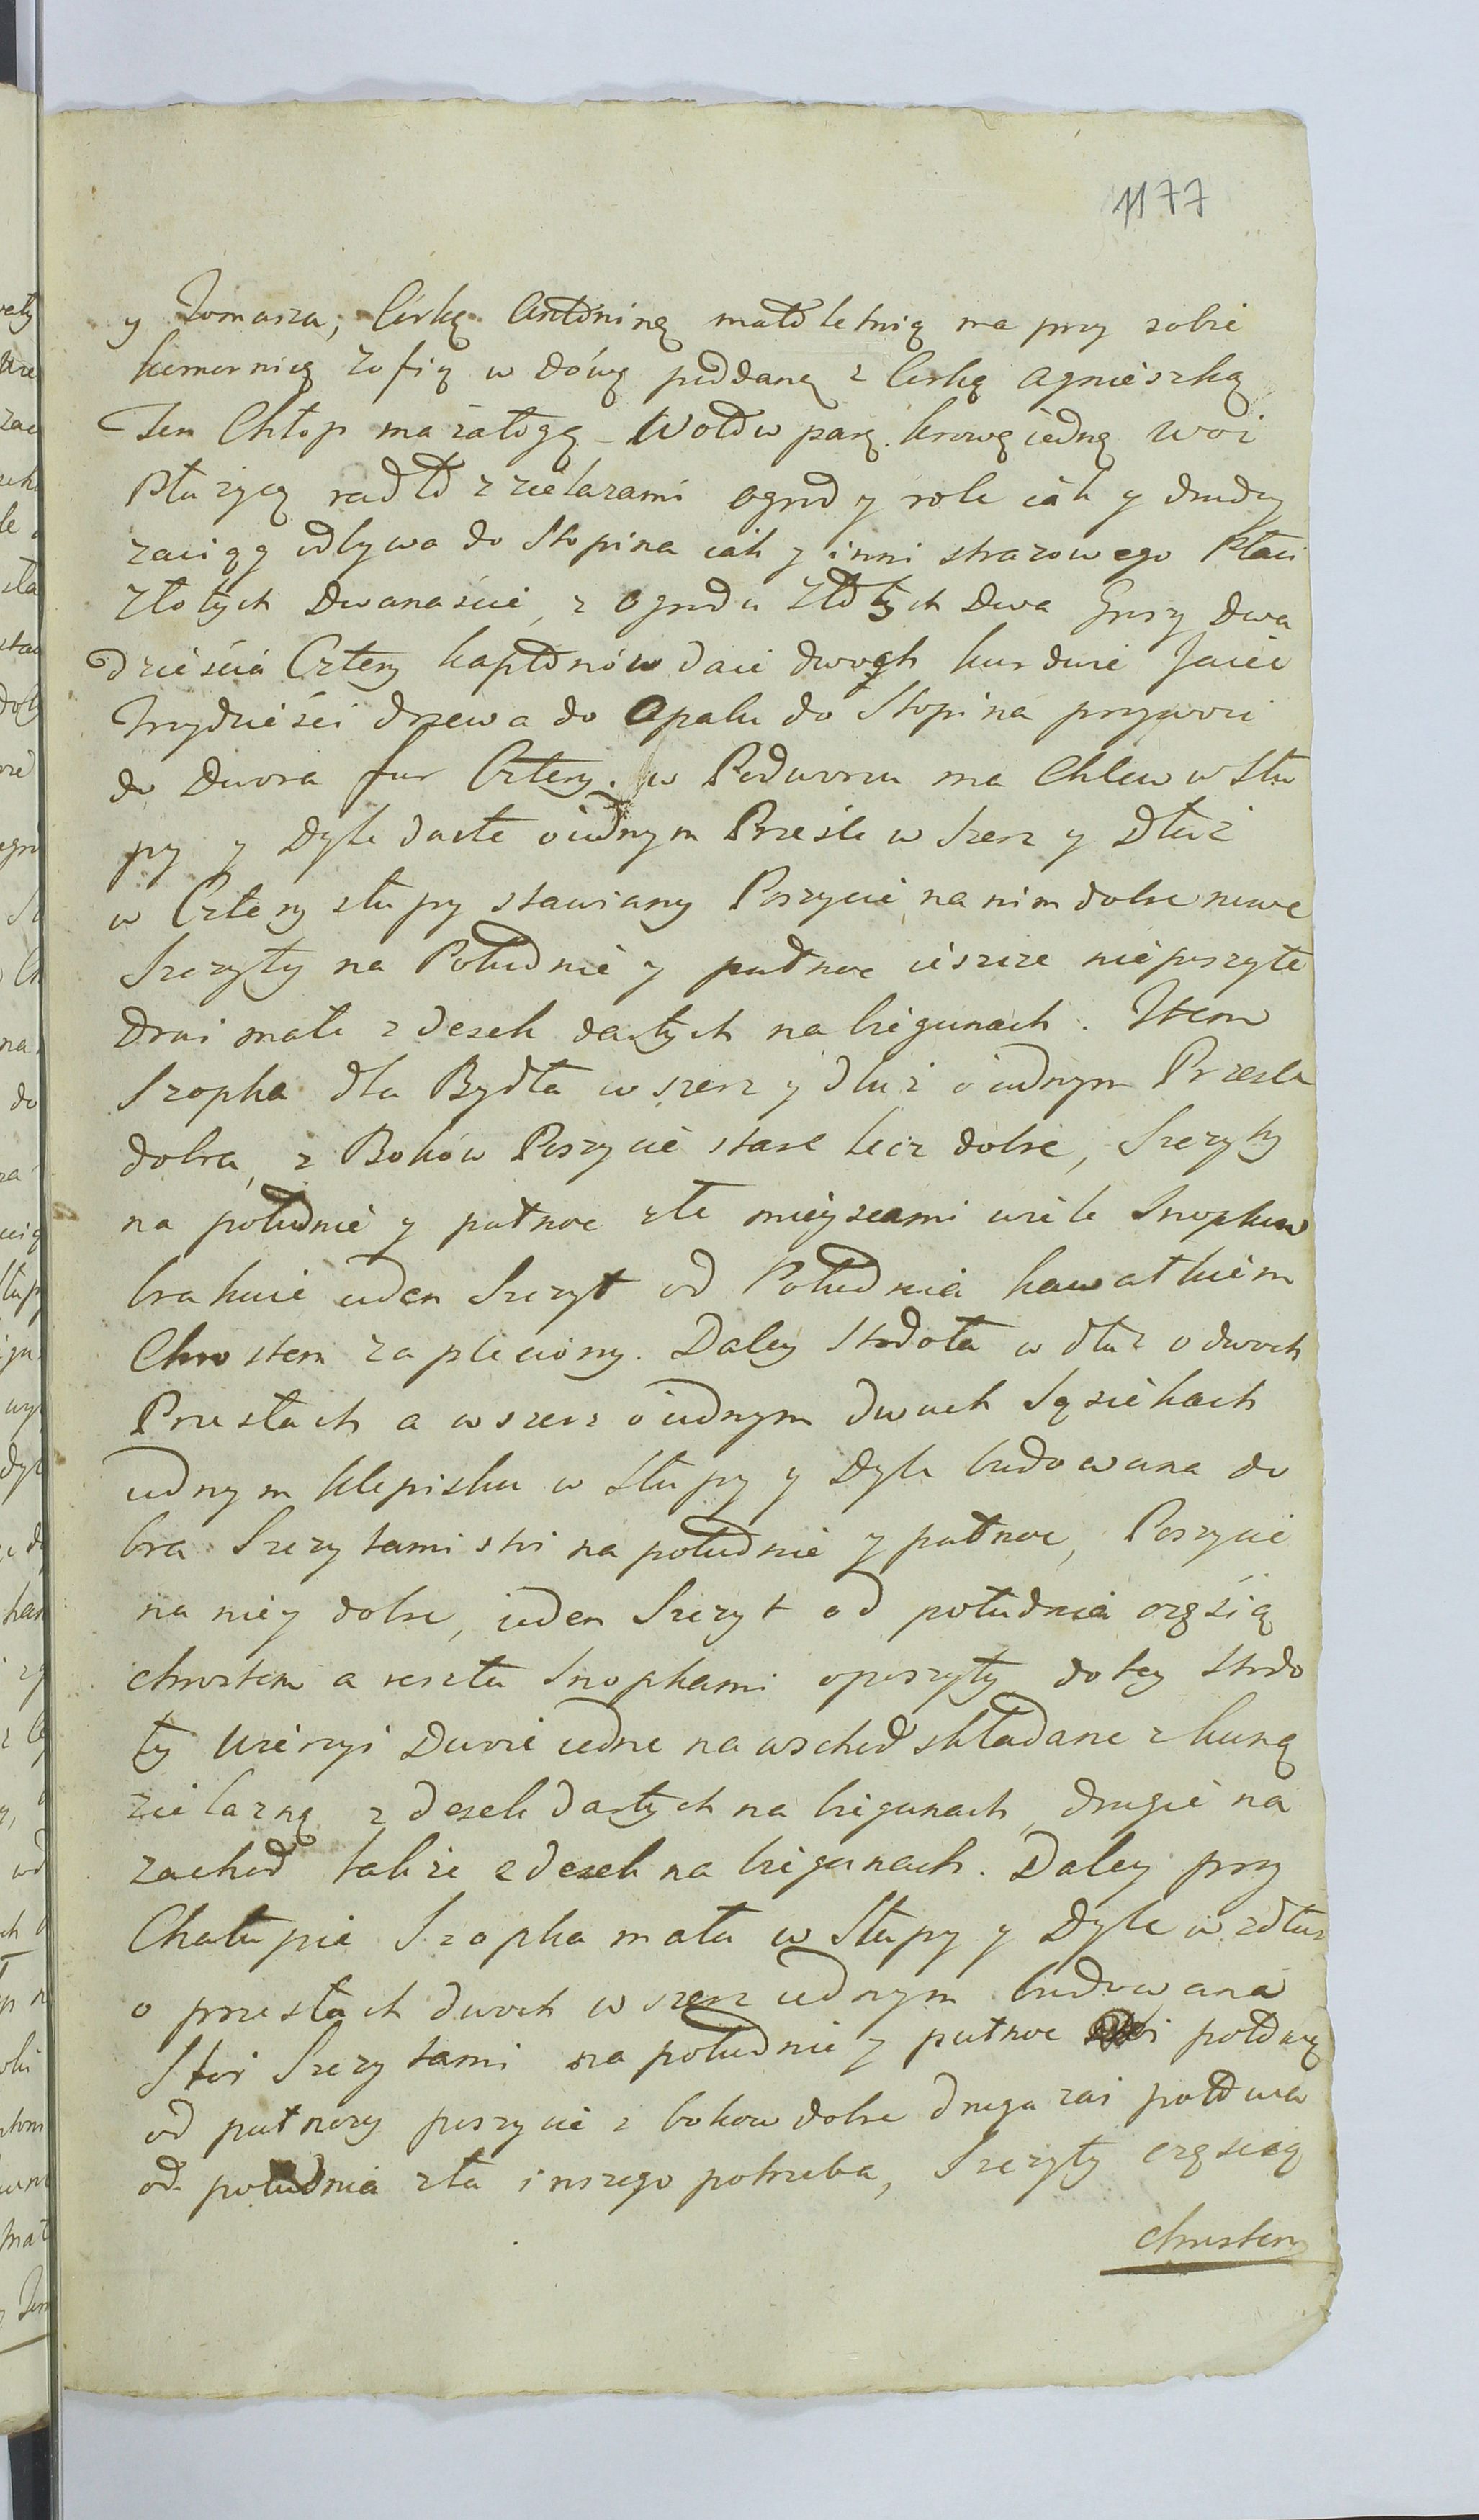 1177
y Tomasza, Corkę Antoninę małoletnią ma przy sobie
komornicę Zofię wdówę poddaną z Corką Agnieszką
Ten Chłop ma załogę Wołow parę krowę iedną woz
Płużycę radło z zielazami ogrod y role iak y drudzy
zaciąg odbywa do Stopina iak y inni strazowego Płaci
Złotych Dwanaście, z Ogrodu Złotych Dwa Groszy Dwa
dzieścia Cztery kapłonów daie dwoch kur dwie Jaiec
Trzydzieści drzewa do Opału do Stopina przywozi
do Dwora fur Cztery. w Podworzu ma Chlew w Słu
py y Dyle darte o iednym Prześle w Szerz y Dłuż
w Cztery słupy stawiany Poszycie na nim dobre nowe
Szczyty na Południe y pułnoc ieszcze nieposzyte
Drzwi małe z desek dartych na biegunach. Item
Szopka dla Bydła w szerz y dłuż o iednym Przęśle
dobra, z Boków Poszycie stare lecz dobre, Szczyty
na południe y pułnoc złe mieyscami wiele Snopkow
brakuie ieden Szczyt od Południa kawałkiem
Chrostem zapleciony. Daley Stodoła w dłuż o dwoch
Przesłach a wszerz o iednym dwuch Sąsiekach
iednym klepisku w Słupy y Dyle budowana do
bra Szczytami stoi na południe y pułnoc, Poszycie
na niey dobre, ieden Szczyt od południa częsią
chrostem a reszta Snopkami oposzyty do tey Stodo
ły Wierzyi Dwoie iedne na wschod składane z kuną
zielazną z desek dartych na biegunach, drugie na
zachod także z desek na biegunach. Daley przy
Chałupie Szopka mała w Słupy y Dyle w zdłuz
o przesłach dwoch w szerz iednym budowana
Stoi Szczytami na południe y pułnoc połowę
od pułnocy poszycie z bokow dobre druga zaś połowa
od południa zła inszego potrzeba, Szczyty częscią
chrostem